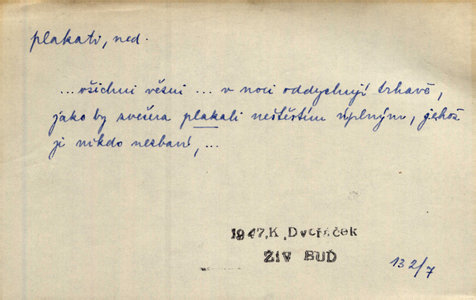 plakati, ned.
... všichni věrni ... v noci oddychují trhavě,
jako by zvečera plakali neštěstím úplným, jehož
ji nikdo nezbaví, ...
1947, K. Dvořáček
ŽIV BUĎ
132/7